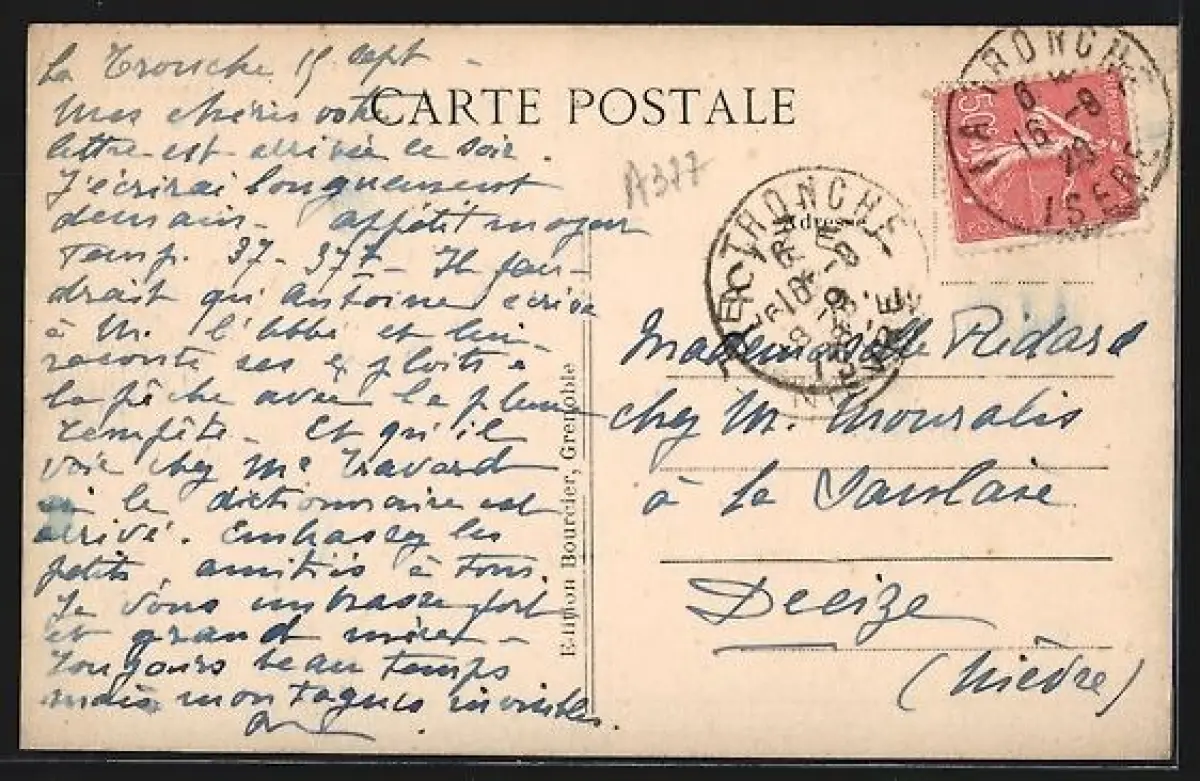 La Tronche 15 sept -
CARTE POSTALE
Mes chéries votre
lettre est arrivée ce soir.
J'écrirai longuement
demain - appétit moyen
Temp. 37 - 37 - Il fau-
drait qu'Antoine écrive
à M. l'abbé et lui
raconte ses exploits à
la pêche avec la pleine
tempête - Et qu'il
voie chez Me Travard
si le dictionnaire est
arrivé. Embrassez les
petits, amitiés à tous.
Je vous embrasse fort
et grand mère -
Toujours beau temps
mais montagnes invisibles.
A387
Adresse
Edition Bourcier, Grenoble
Mademoiselle Ridard
chez M. Mouralis
à la Saulaie
Decize
(Nièvre)
LA TRONCHE
6
16 -9
29
ISERE
50c
LA TRONCHE
NIEVRE